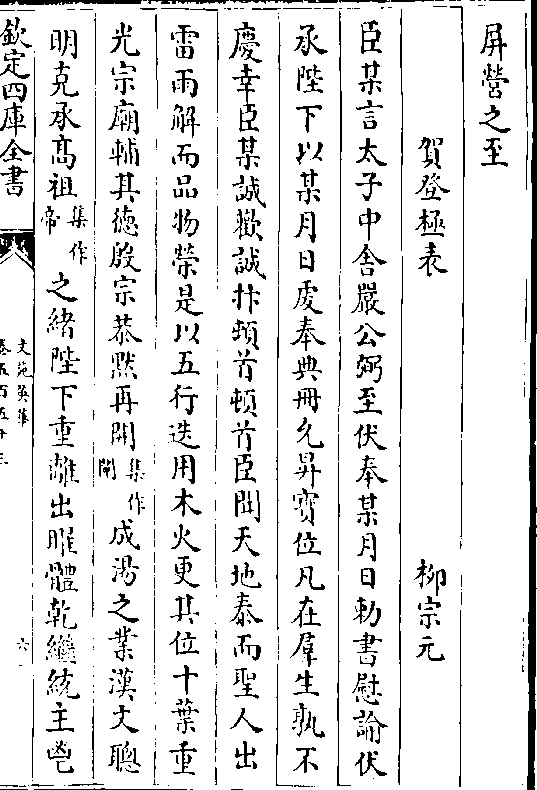 屏營之至
賀登極表 柳宗元
臣某言太子中舍嚴公弼至伏奉某月日勅書慰諭伏
承陛下以某月日虔奉典冊允昇寳位凡在羣生孰不
慶幸臣某誠歡誠抃頓首頓首臣聞天地泰而聖人出
雷雨解而品物榮是以五行迭用木火更其位十葉重
光宗廟輔其徳殷宗恭黙再開集作闡成湯之業漢文聰
明克承髙祖集作帝之緒陛下重離出曜體乾繼統主鬯
欽定四庫全書
文苑英華
卷五百五十三
六